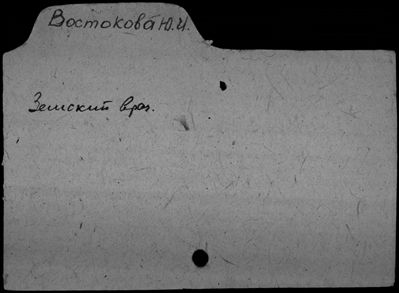 Востокова Ю.И.
Земский врач.